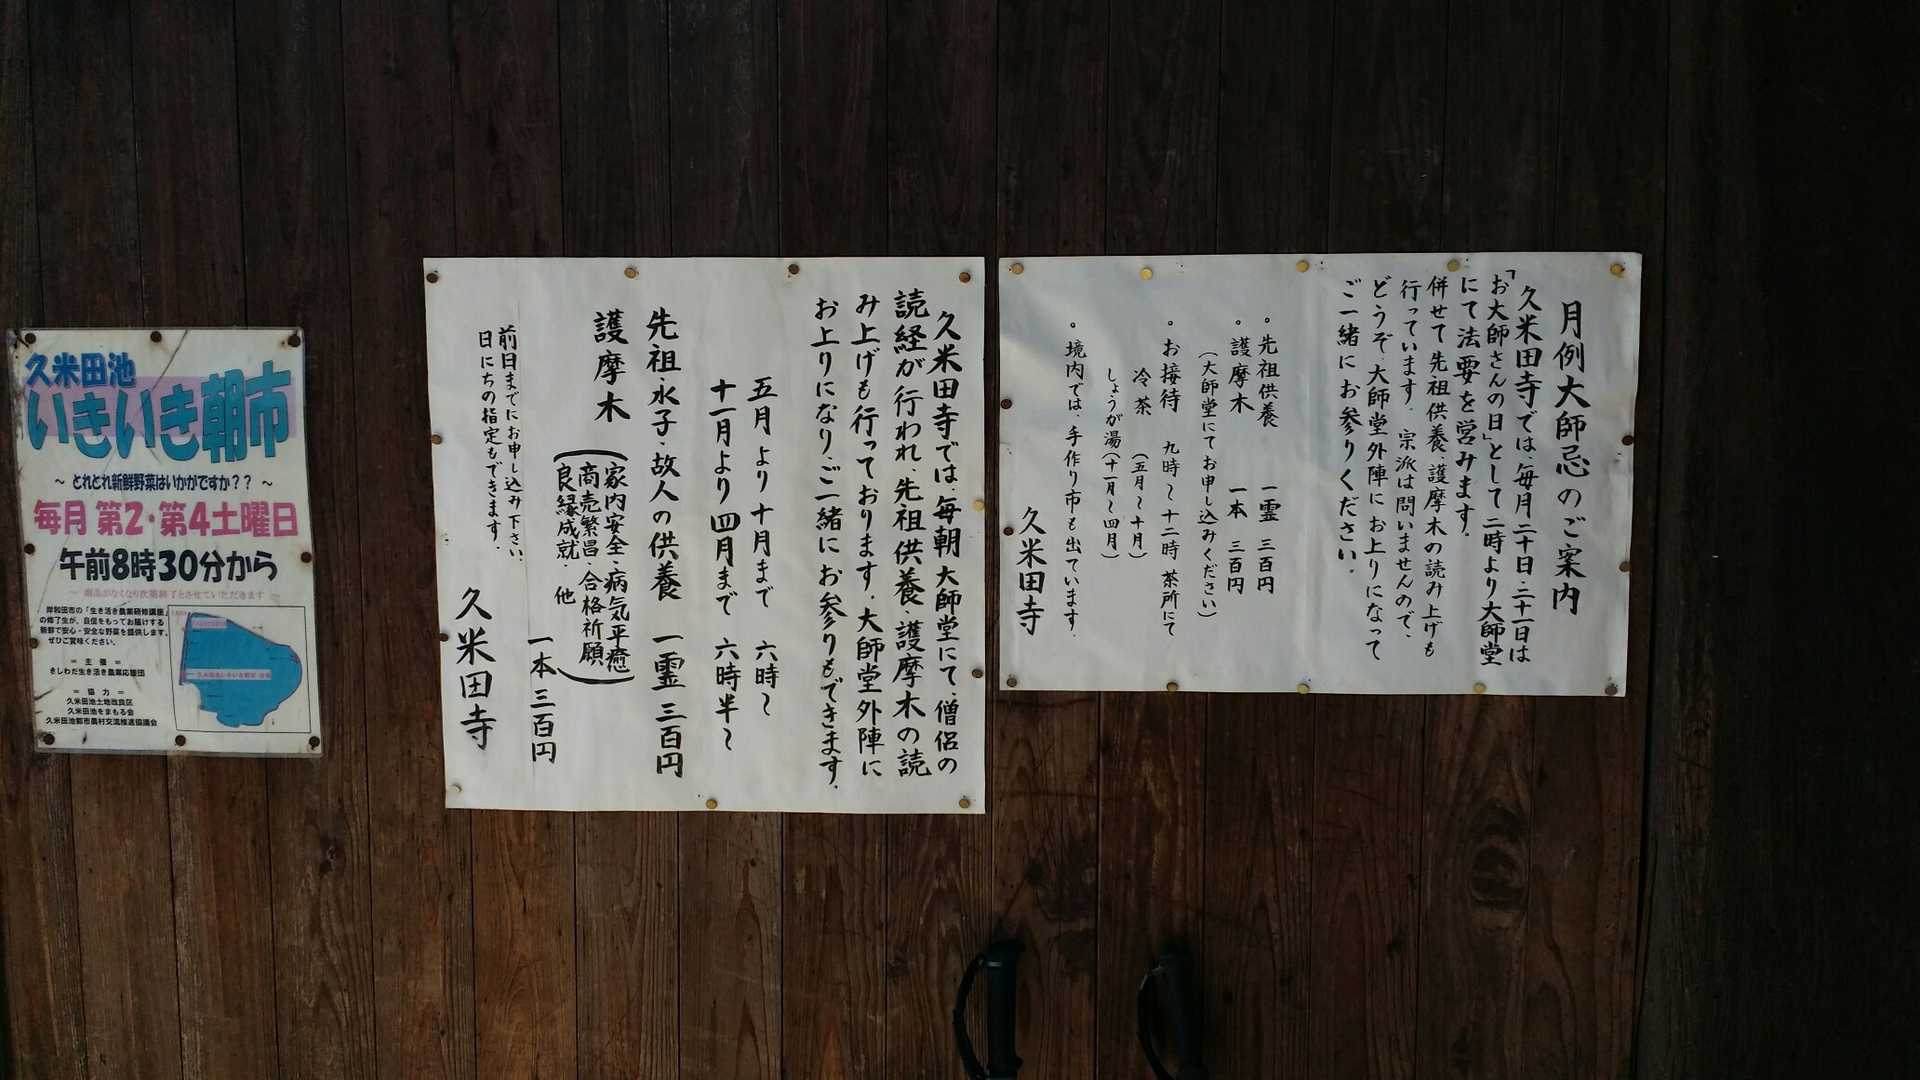 月例大師忌のご案内
久米田寺では、毎月二十日・二十一日は
「お大師さんの日」として二時より大師堂
にて法要を営みます。
併せて先祖供養、護摩木の読み上げも
行っています。宗派は問いませんので、
どうぞ、大師堂外陣にお上りになって
ご一緒にお参りください。
。先祖供養 一霊 三百円
。護摩木 一本 三百円
(大師堂にてお申し込みください)
。お接待 九時～十二時 茶所にて
冷茶 (五月～十月)
しょうが湯(十一月～四月)
。境内では、手作り市も出ています。
久米田寺
久米田寺では、毎朝大師堂にて、僧侶の
読経が行われ、先祖供養、護摩木の読
み上げも行っております。大師堂外陣に
お上りになり、ご一緒にお参りもできます。
五月より十月まで 六時～
十一月より四月まで 六時半～
先祖・水子・故人の供養 一霊 三百円
護摩木
(家内安全・病気平癒
商売繁昌・合格祈願
良縁成就・他)
一本 三百円
前日までにお申し込み下さい。
日にちの指定もできます。
久米田寺
久米田池
いきいき朝市
～ とれとれ新鮮野菜はいかがですか？？ ～
毎月 第2・第4土曜日
午前8時30分から
～ 商品がなくなり次第終了とさせていただきます ～
岸和田市の「生き活き農業研修講座」
の修了生が、自信をもってお届けする
新鮮で安心・安全な野菜を提供します。
ぜひご賞味ください。
＝ 主 催 ＝
きしわだ生き活き農業応援団
＝ 協 力 ＝
久米田池土地改良区
久米田池をまもる会
久米田池郷都市農村交流推進協議会